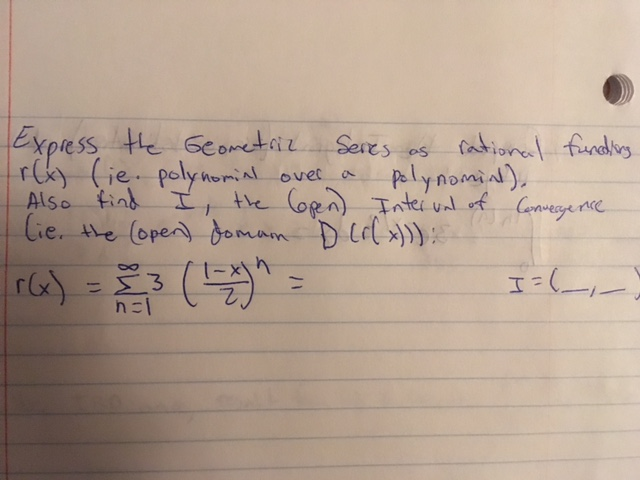 Express the Geometric Series as rational functions
r(x) (ie. polynomial over a polynomial).
Also find I, the (open) Interval of Convergence
(ie. the (open) domain D(r(x))):
r(x) = ∞∑n=1 3 ((1-x)/2)^n = I = (_, _)